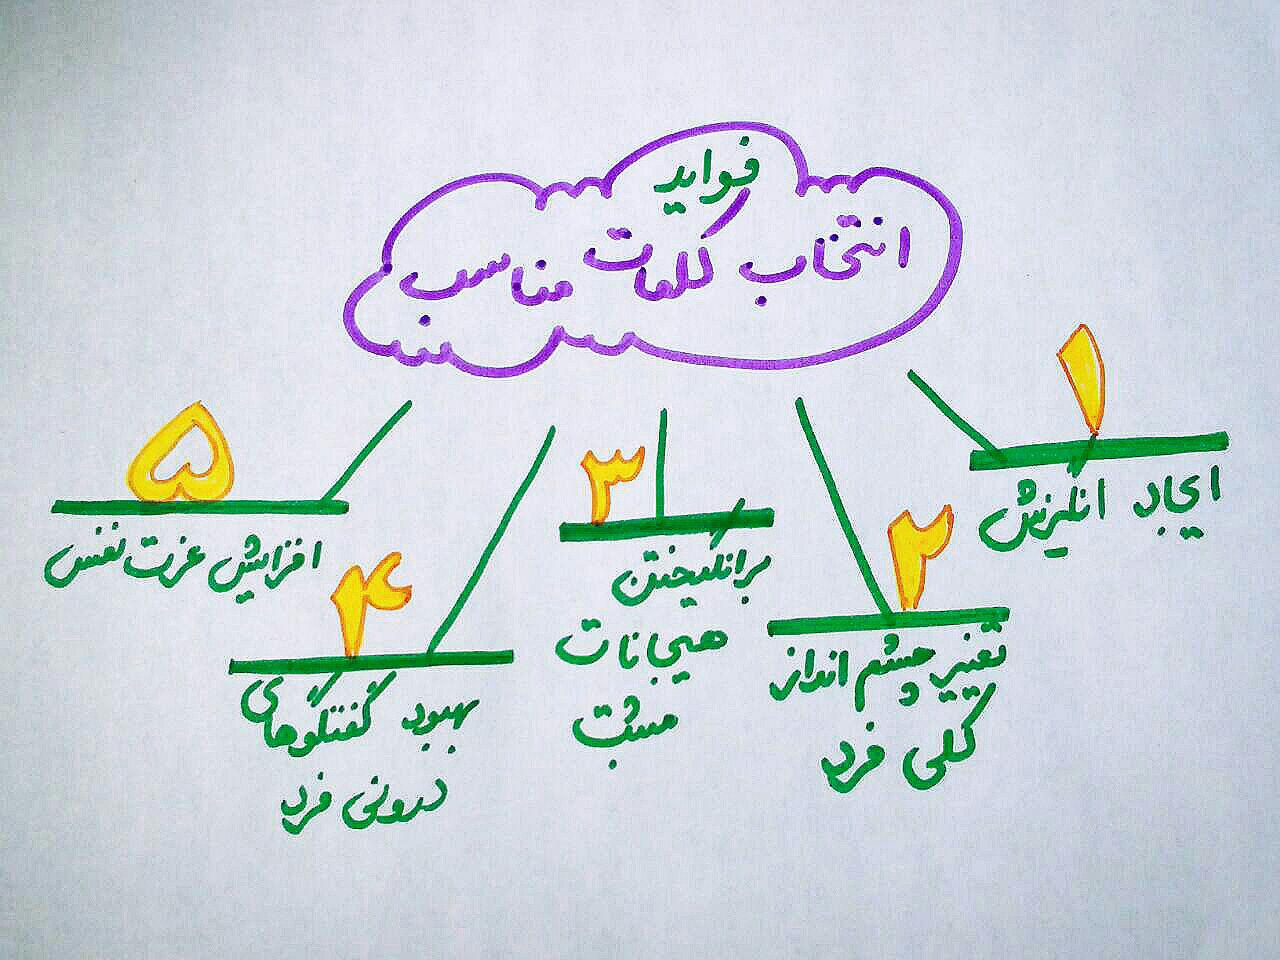 فواید
انتخاب کلمات مناسب
۱
ایجاد انگیزش
۲
تغییر چشم انداز
کلی فرد
۳
برانگیختن
هیجانات
مثبت
۴
بهبود گفتگوهای
درونی فرد
۵
افزایش عزت نفس